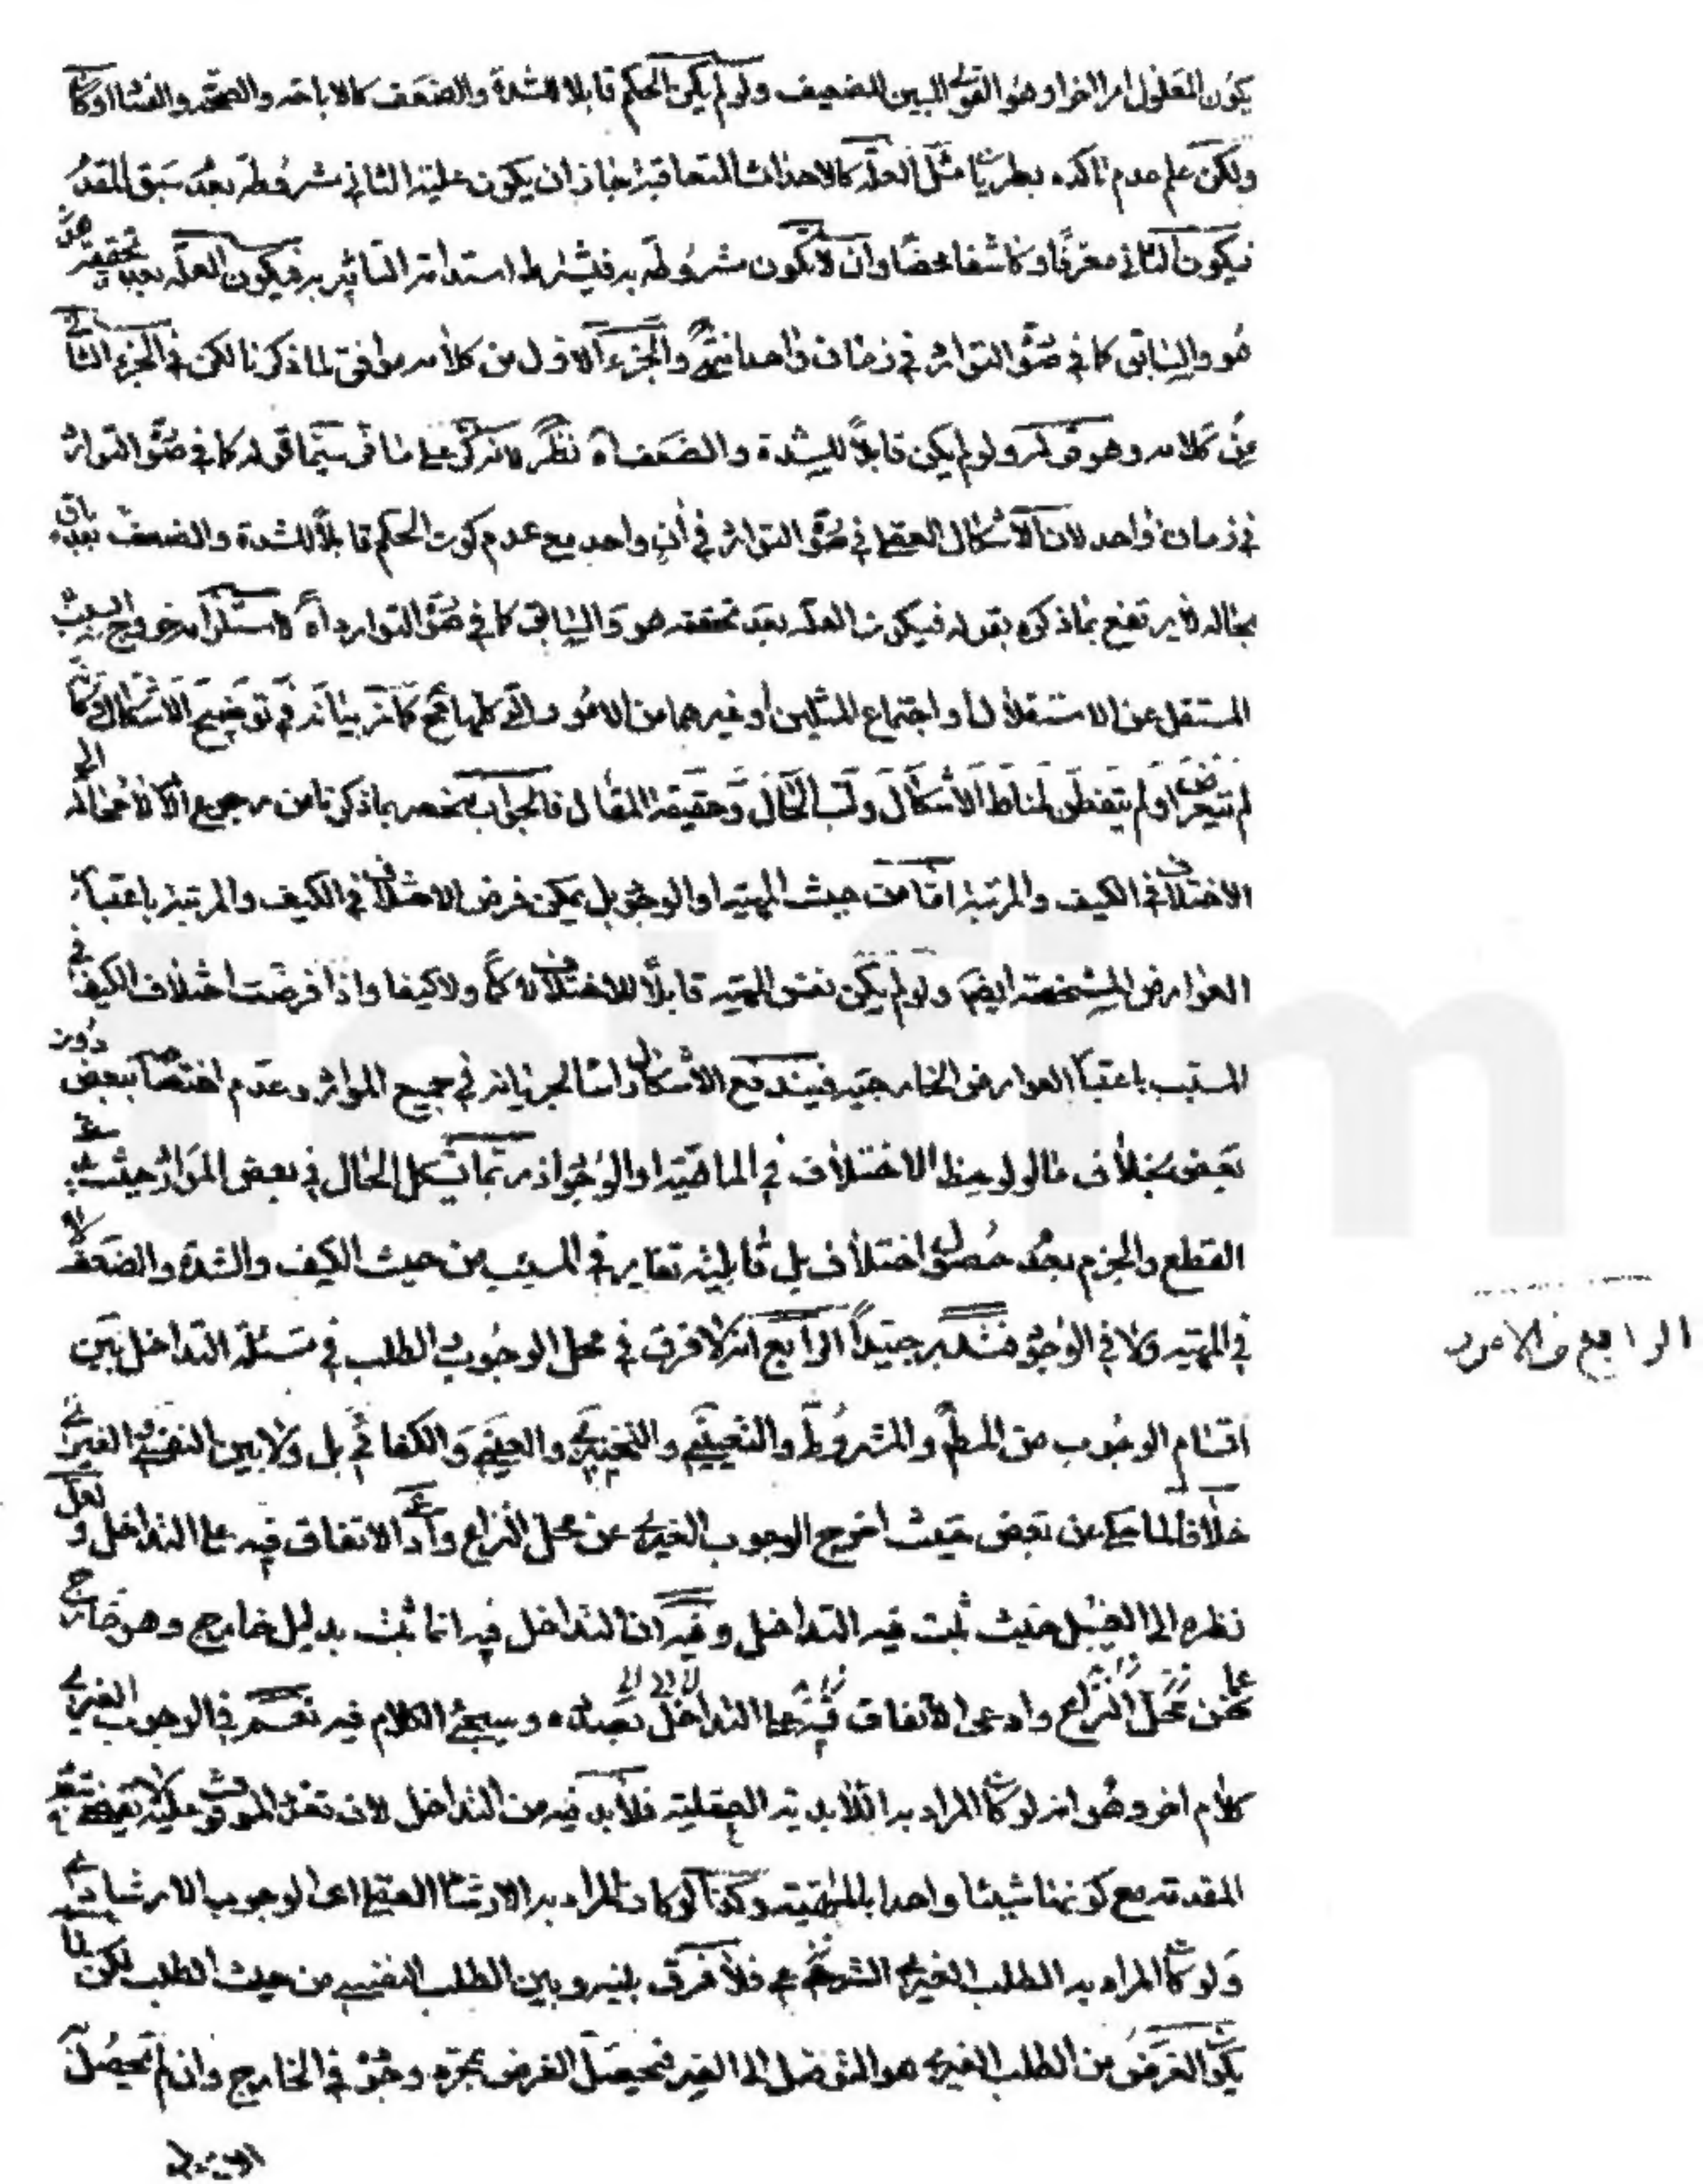 يكون المعلول امرا اخرا وهو القوى المبين للضعيف ولو لم يكن الحكم قابلا للشدة والضعف كالاباحة والصحة والفسا او كا
ولكن علم عدم تاكده بطريا مثل العلة كالاحداث المتعاقبة جاز ان يكون علية الثانى مشروطة بعد سبق المقد
فيكون الثانى معرفا وكاشفا محضا وان لا يكون مشروطة به فيشترط استدامة التاثير به فيكون العلة بعد تحققه هو
هو والسابق كما في صو التوارد في زمان واحد انتهى والجزء الاول من كلامه موافق لما ذكرنا لكن في الجزء الثانى
من كلامه وهو قوله ولو لم يكن قابلا للشدة والضعف اه نظر لانه كر على ما فر سيما قوله كما في صو التوارد
في زمان واحد لان الاشكال العقلى في صو التوارد في ان واحد مع عدم كون الحكم قابلا للشدة والضعف بعد باق
بحاله لا يرتفع بما ذكره بقوله فيكون العلة بعد تحققه هو والسابق كما في صو التوارد اه لاستلزامه خروج السبب
المستقل عن الاستقلال او اجتماع المثلين او غيرهما من الامور التى كلها مح كما مر بيانه في توضيح الاشكال وكا
لم يتعرض او لم يتفطن لمناط الاشكال ولب الحال وحقيقة المقال فالجواب منحصر بما ذكرنا من رجوع الامر لا محالة الى
الاختلا في الكيف والمرتبة اما من حيث المهية او الوجو بل يمكن فرض الاختلا في الكيف والمرتبة باعتبا
العوارض المشخصة ايضا ولو لم يكن نفس المهية قابلا للاختلا لا كما ولا كيفا واذا فرضت اختلاف الكيف في
المسبب باعتبا العوارض الخارجية فيندفع الاشكال راسا لجريانه في جميع الموارد وعدم اختصا ببعض دون
بعض بخلاف ما لو لوحظ الاختلاف في الماهية او الوجو اذ ربما يشكل الحال في بعض الموارد حيث
القطع والجزم بعد حصول اختلاف بل قابلية تغاير في المسبب من حيث الكيف والشدة والضعف لا
في المهية ولا في الوجو فتدبر جيدا الرابع انه لا فرق في محل الوجوب والطلب في مسئلة التداخل بين
اقسام الوجوب من المط والمشروط والتعيينى والتخييرى والعينى والكفائى بل ولا بين النفسى والغيرى
خلافا لما حكى عن بعض حيث اخرج الوجوب الغيرى عن محل النزاع وادعى الاتفاق فيه على التداخل ولعل
نظره الى الغسل حيث ثبت فيه التداخل وفيه ان التداخل فيه انما ثبت بدليل خارج وهو خارج
عن محل النزاع وادعى الاتفاق فيه على التداخل وسيجئ الكلام فيه نعم في الوجوب الغيرى
كلام اخر وهو انه لو كا المراد به اللابدية العقلية فلا بد فيه من التداخل لان تعدد الموقوف عليه لا يقتضى تعدد
المقدمة مع كونها شيئا واحدا بالمهية وكذا لو كان المراد به الارشا العقلى اعنى الوجوب الارشادى
ولو كا المراد به الطلب الغيرى الشرعى فلا فرق بينه وبين الطلب النفسى من حيث الطلب لكن لما
يكو الغرض من الطلب الغيرى هو التوصل الى الغير فيحصل الغرض بمجرد وجو في الخارج وان لم يحصل
الرابع من الامور